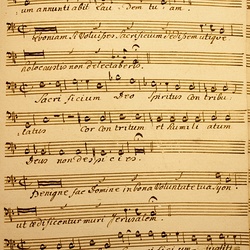 um annunti abit Lau dem tu am.
Quoniam si Voluisses, Sacrificium dedissem utique
holocaustis non delectaberis.
Sacri ficium Deo Spiritus Contribu
latus Cor Contritum et humili atum
Deus non despi cies.
Benigne fac Domine in bona Voluntate tua, Syon
ut ædificentur muri Jerusalem.